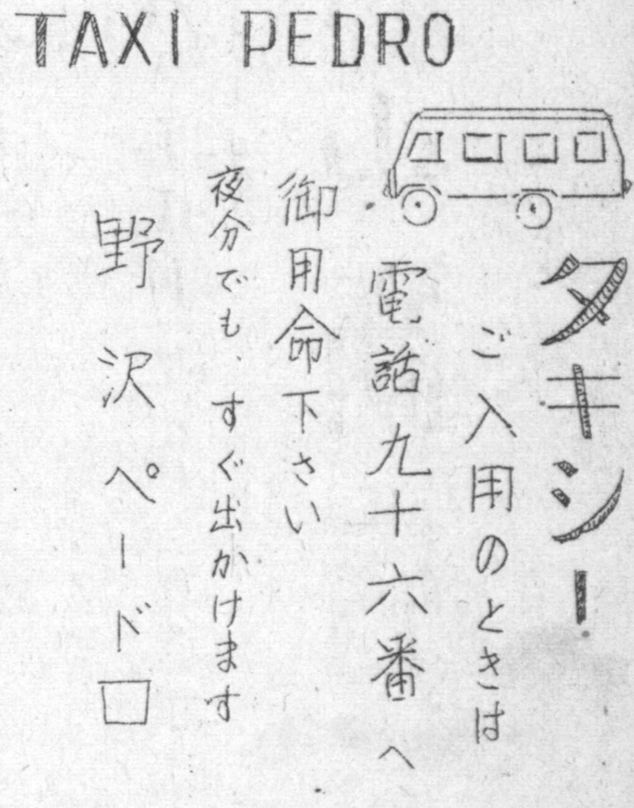 TAXI PEDRO
タキシー
ご入用のときは
電話九十六番へ
御用命下さい
夜分でも すぐ出かけます
野沢ペードロ